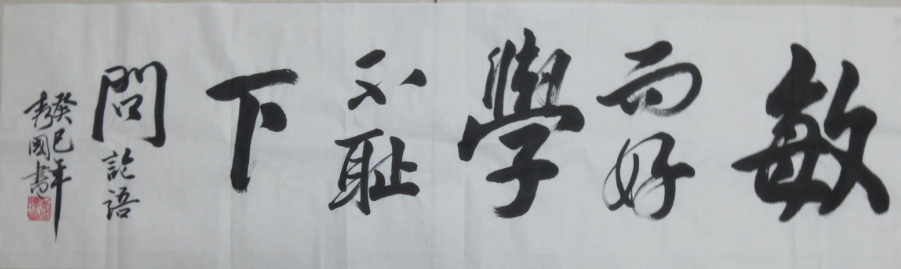 敏
而好
學
不耻
下
問 論語
癸巳年
國書